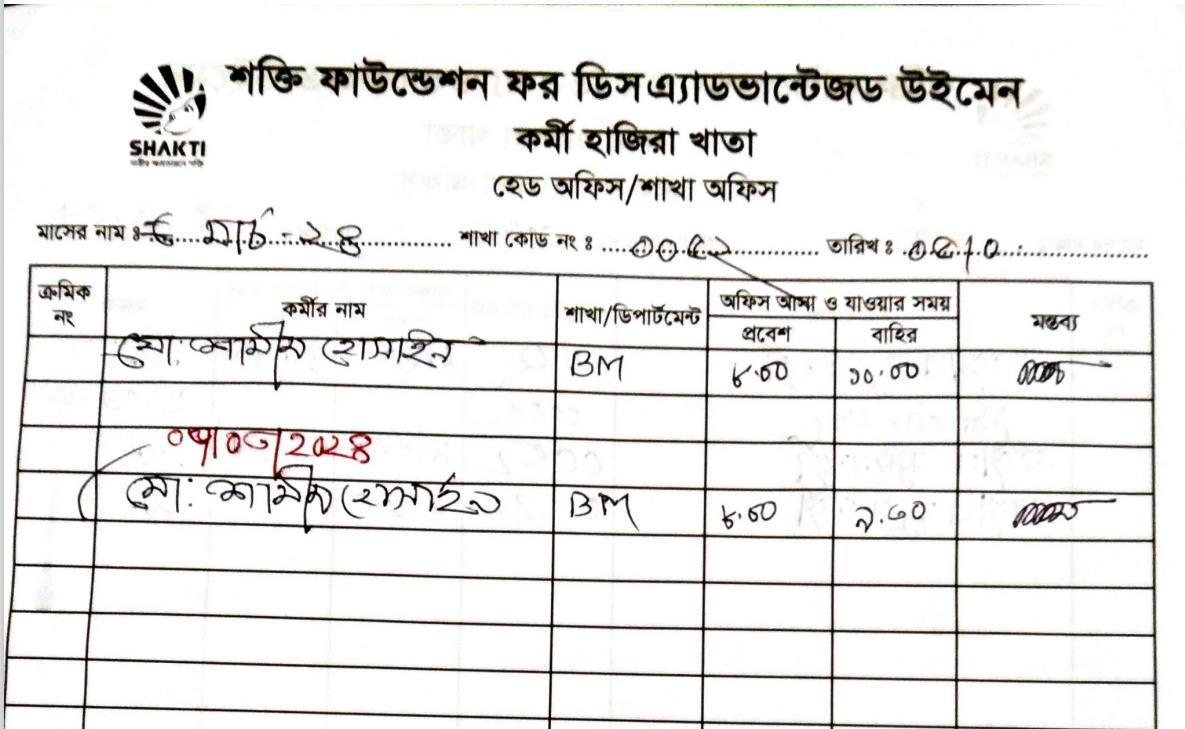 শক্তি ফাউন্ডেশন ফর ডিসএ্যাডভান্টেজড উইমেন
SHAKTI
কর্মী হাজিরা খাতা
হেড অফিস/শাখা অফিস
মাসের নাম ঃ মার্চ - ২৪ শাখা কোড নং ঃ ০০৫২ তারিখ ঃ
ক্রমিক নং কর্মীর নাম শাখা/ডিপার্টমেন্ট অফিস আসা ও যাওয়ার সময় মন্তব্য
প্রবেশ বাহির
মো: শামীম হোসাইন BM ৮.০০ ১০.০০
মো: শামীম হোসাইন BM ৮.০০ ৯.৩০